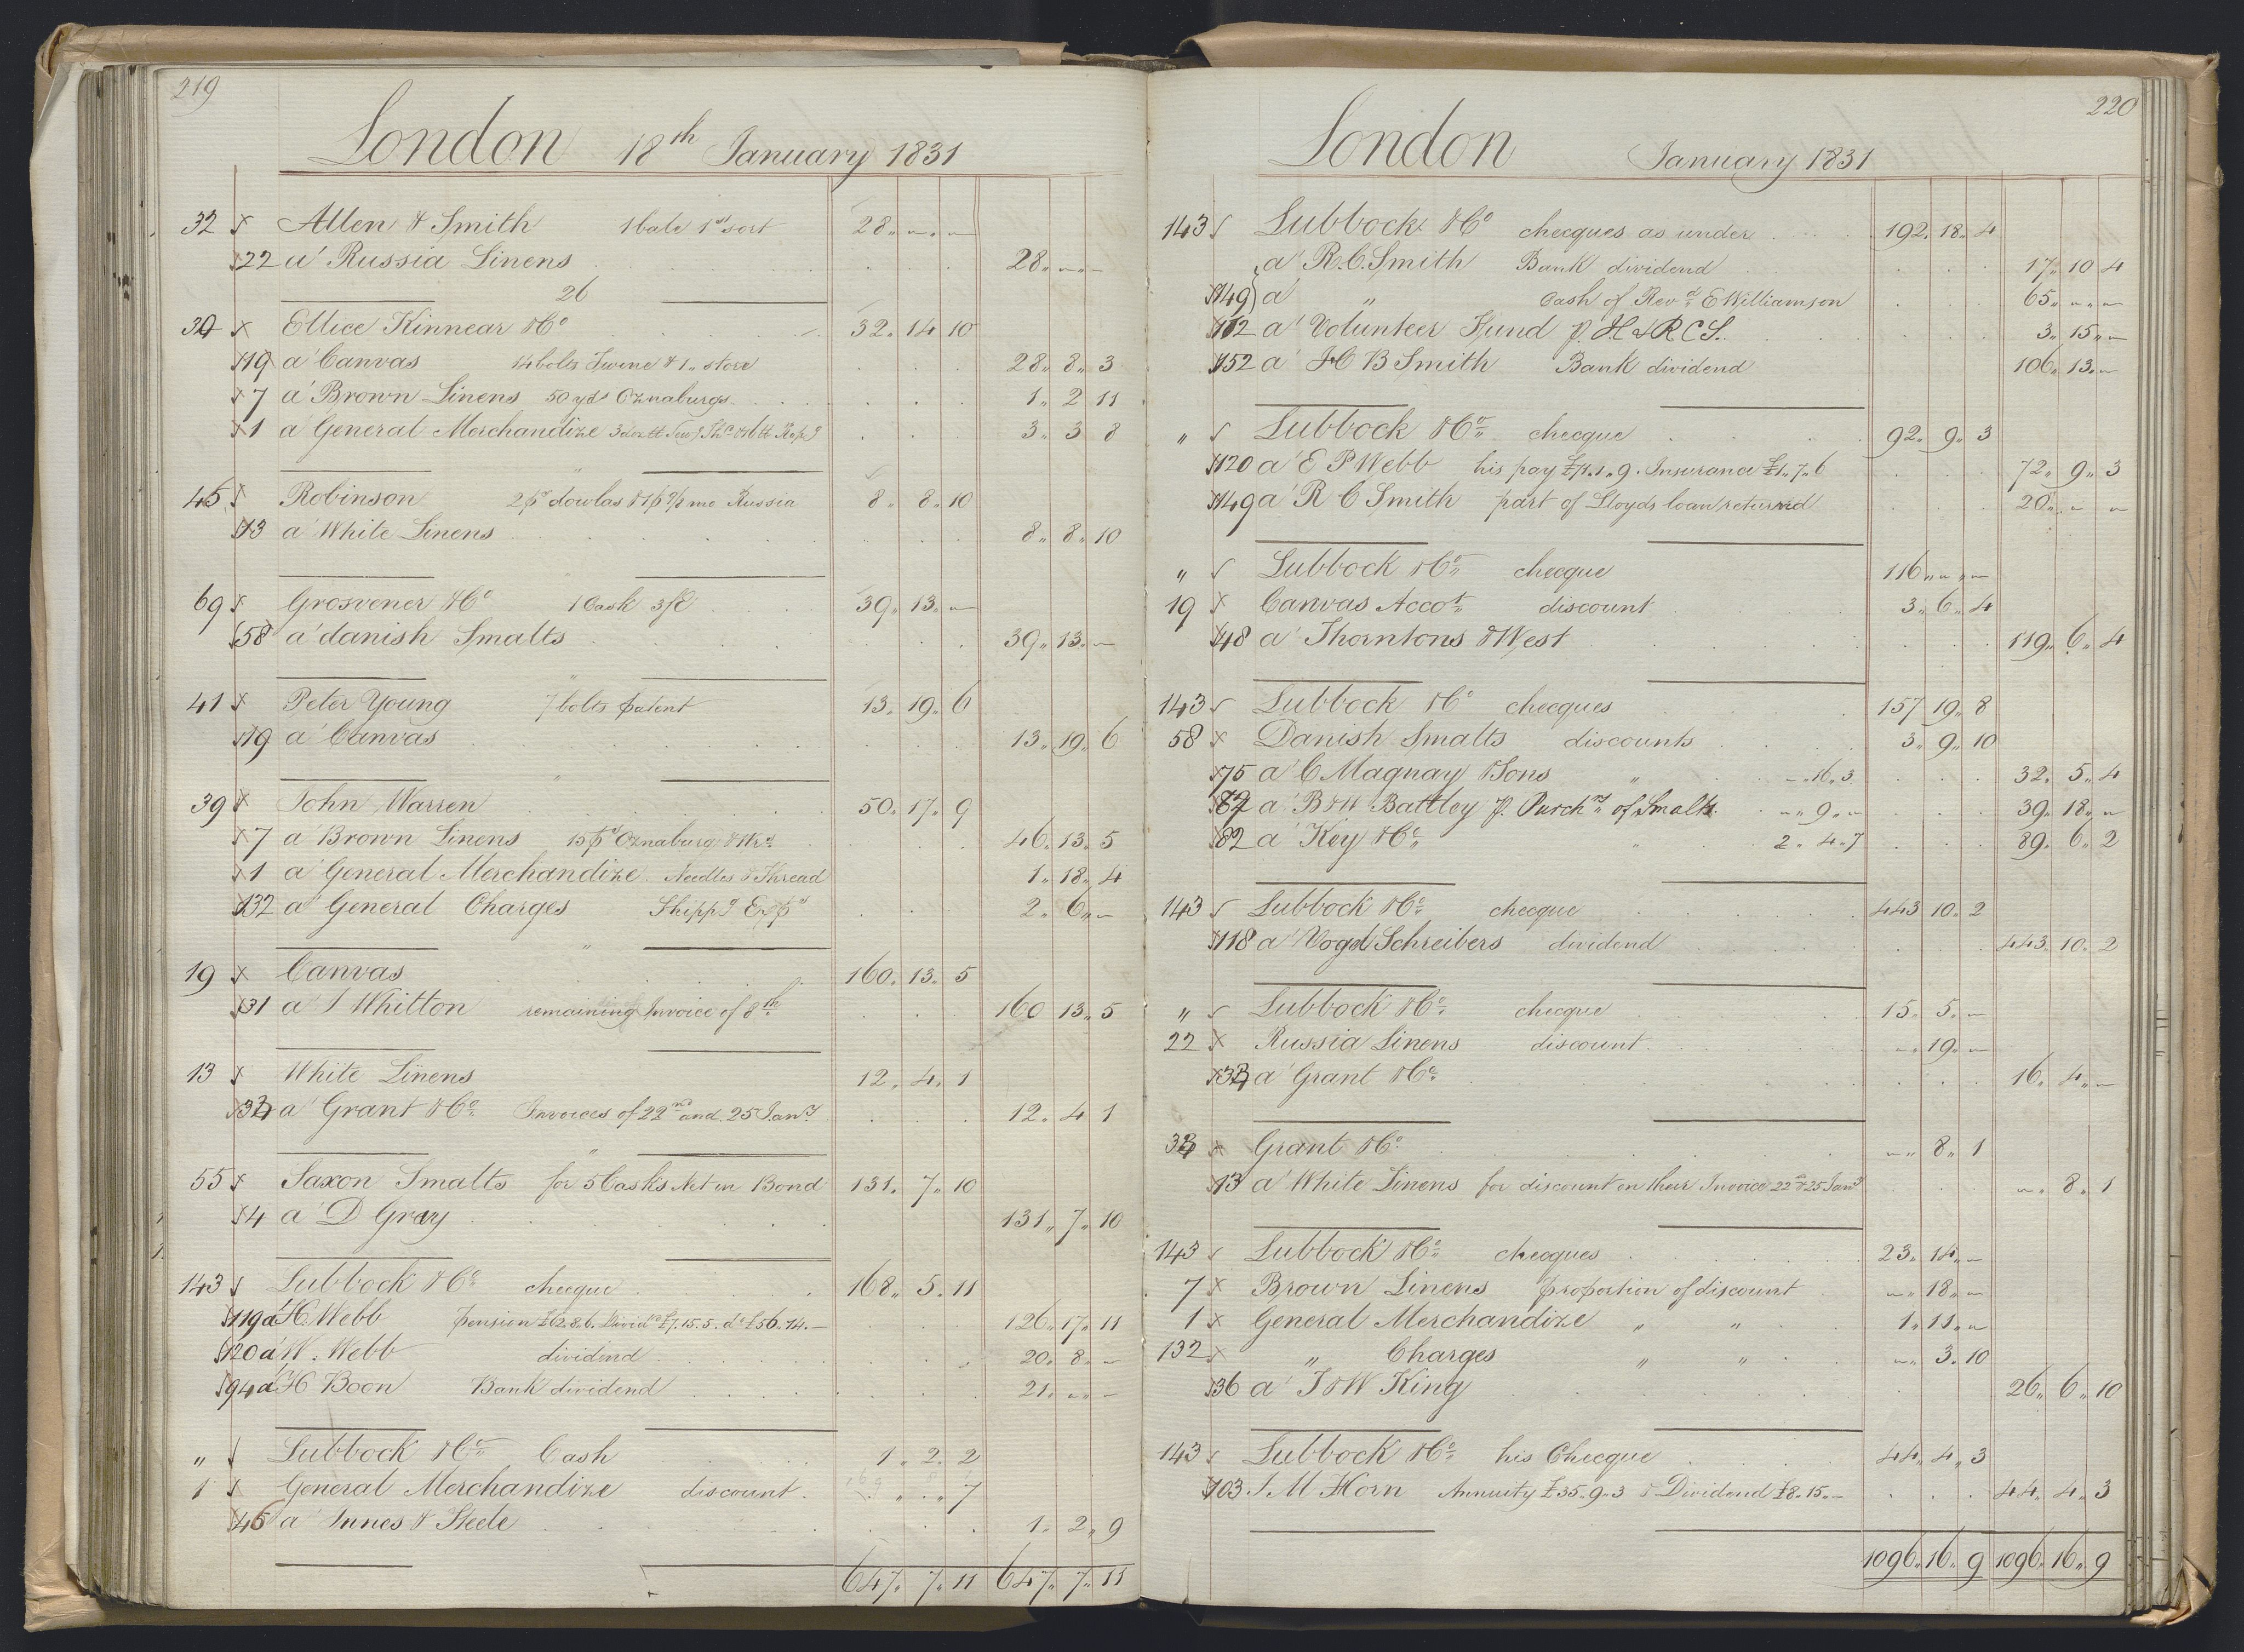 219
London 18th January 1831
32 Allen & Smith 1 bale 1st sort 28 " " "
22 a' Russia Linens 28 " " "
26
30 Ellice Kinnear & Co 32 . 14 . 10
19 a' Canvas 14 bolts Twine & 1 " store 28 " 8 " 3
7 a' Brown Linens 50 yds Oznaburgs 1 " 2 11
1 a' General Merchandize 3 " 3 8
"
45 Robinson 2 ps dowlas & 1 ps Russia 8 " 8 . 10
13 a' White Linens 8 " 8 " 10
"
69 Grosvener & Co 1 Cask 39 " 13 . "
58 a' danish Smalts 39 " 13 . "
"
41 Peter Young 7 bolts patent 13 . 19 . 6
19 a' Canvas 13 . 19 . 6
"
39 John Warren 50 . 17 . 9
7 a' Brown Linens 15 ps Oznaburg 46 . 13 . 5
1 a' General Merchandize Needles & Thread 1 . 18 . 4
132 a' General Charges Shippg Exps 2 . 6 " "
"
19 Canvas 160 . 13 . 5
31 a' J Whitton remaining Invoice of 8th 160 13 . 5
13 White Linens 12 . 4 . 1
a' Grant & Co Invoices of 22nd and 25 Jany 12 . 4 1
"
55 Saxon Smalts for 5 Casks Net in Bond 131 . 7 . 10
4 a' D Gray 131 " 7 " 10
143 Lubbock & Co checque 168 . 5 . 11
119 a' H Webb pension £62.8.6. Divid £7.15.5. do £56.14.— 126 . 17 . 11
120 a' W. Webb dividend 20 . 8 . "
94 a' H Boon Bank dividend 21 . " "
" Lubbock & Co Cash 1 . 2 . 2
1 General Merchandize discount " . 7
45 a' Innes & Steele 1 . 2 " 9
647 . 7 . 11 647 . 7 . 11
220
London January 1831
143 Lubbock & Co checques as under 192 . 18 . 4
a' R. C. Smith Bank dividend 17 " 10 4
149 a' " Cash of Revd E Williamson 65 " " "
112 a' Volunteer Fund p. H & R C S. 3 . 15 " "
152 a' H B Smith Bank dividend 106 . 13 . "
" Lubbock & Co checque 92 . 9 . 3
120 a' E P Webb his pay £71 . 1 . 9 . Insurance £1 . 7 . 6 72 " 9 " 3
149 a' R C Smith part of Lloyds loan returned 20 " " "
" Lubbock & Co checque 116 " " "
19 Canvas Accot discount 3 . 6 . 4
48 a' Thorntons & West 119 " 6 " 4
143 Lubbock & Co checques 157 19 . 8
58 Danish Smalts discounts 3 . 9 . 10
75 a' C Magnay & Sons " " . 16 . 3 32 . 5 . 4
a' B & W Battley p. Purchs of Smalts " . 9 . " 39 . 18 . "
82 a' Key & Co " 2 . 4 . 7 89 . 6 . 2
143 Lubbock & Co checque 443 10 . 2
118 a' Vogel Schreibers dividend 443 . 10 . 2
" Lubbock & Co checque 15 . 5 . "
22 Russia Linens discount " . 19 . "
a' Grant & Co 16 . 4 . "
Grant & Co " " 8 . 1
13 a' White Linens for discount on their Invoice 22nd & 25 Jany " . 8 . 1
143 Lubbock & Co checques 23 . 14 . "
7 Brown Linens proportion of discount " " 18 . "
1 General Merchandize " " 1 . 11 . "
132 " Charges " " " " 3 . 10
36 a' J & W King 26 . 6 . 10
143 Lubbock & Co his Checque 44 . 4 . 3
103 J. M Horn Annuity £35 . 9 . 3 & Dividend £8 . 15 . — 44 . 4 . 3
1096 . 16 . 9 1096 . 16 . 9